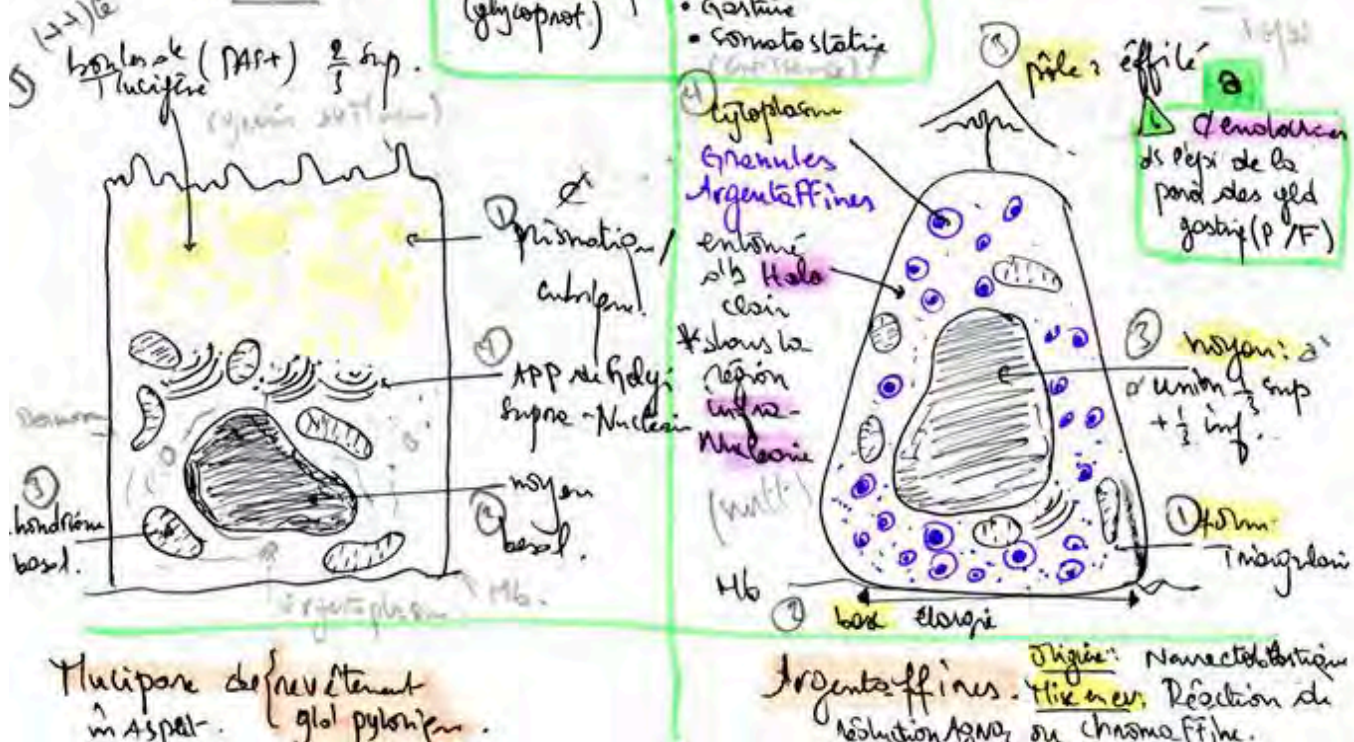 (glycoprot.)
• Gastrine
• Somatostatine
(PAS+) 2/3 sup.
①
prismatique/
cubique.
④
APP de Golgi
supra-Nucléair
noyau
②
basal.
③
basal.
Mb.
ergastoplasme
Mucipare de { revêtement
m̂ Aspect. gld pylorique.
③
pôle : éffilé
④
cytoplasme
Granules
Argentaffines
entouré
d'1 Halo
clair
* dans la
région
infra-
Nucléaire
a
ds l'épi de la
paroi des gld
gastriq (P/F)
③ noyau : à
l'union 2/3 sup
+ 1/3 inf.
① forme
Triangulair
Mb
② base élargie
Argentaffines.
Origine : Neurectoblastique
Mise en ev. Réaction de
réduction AgNO3 ou chromaffine.